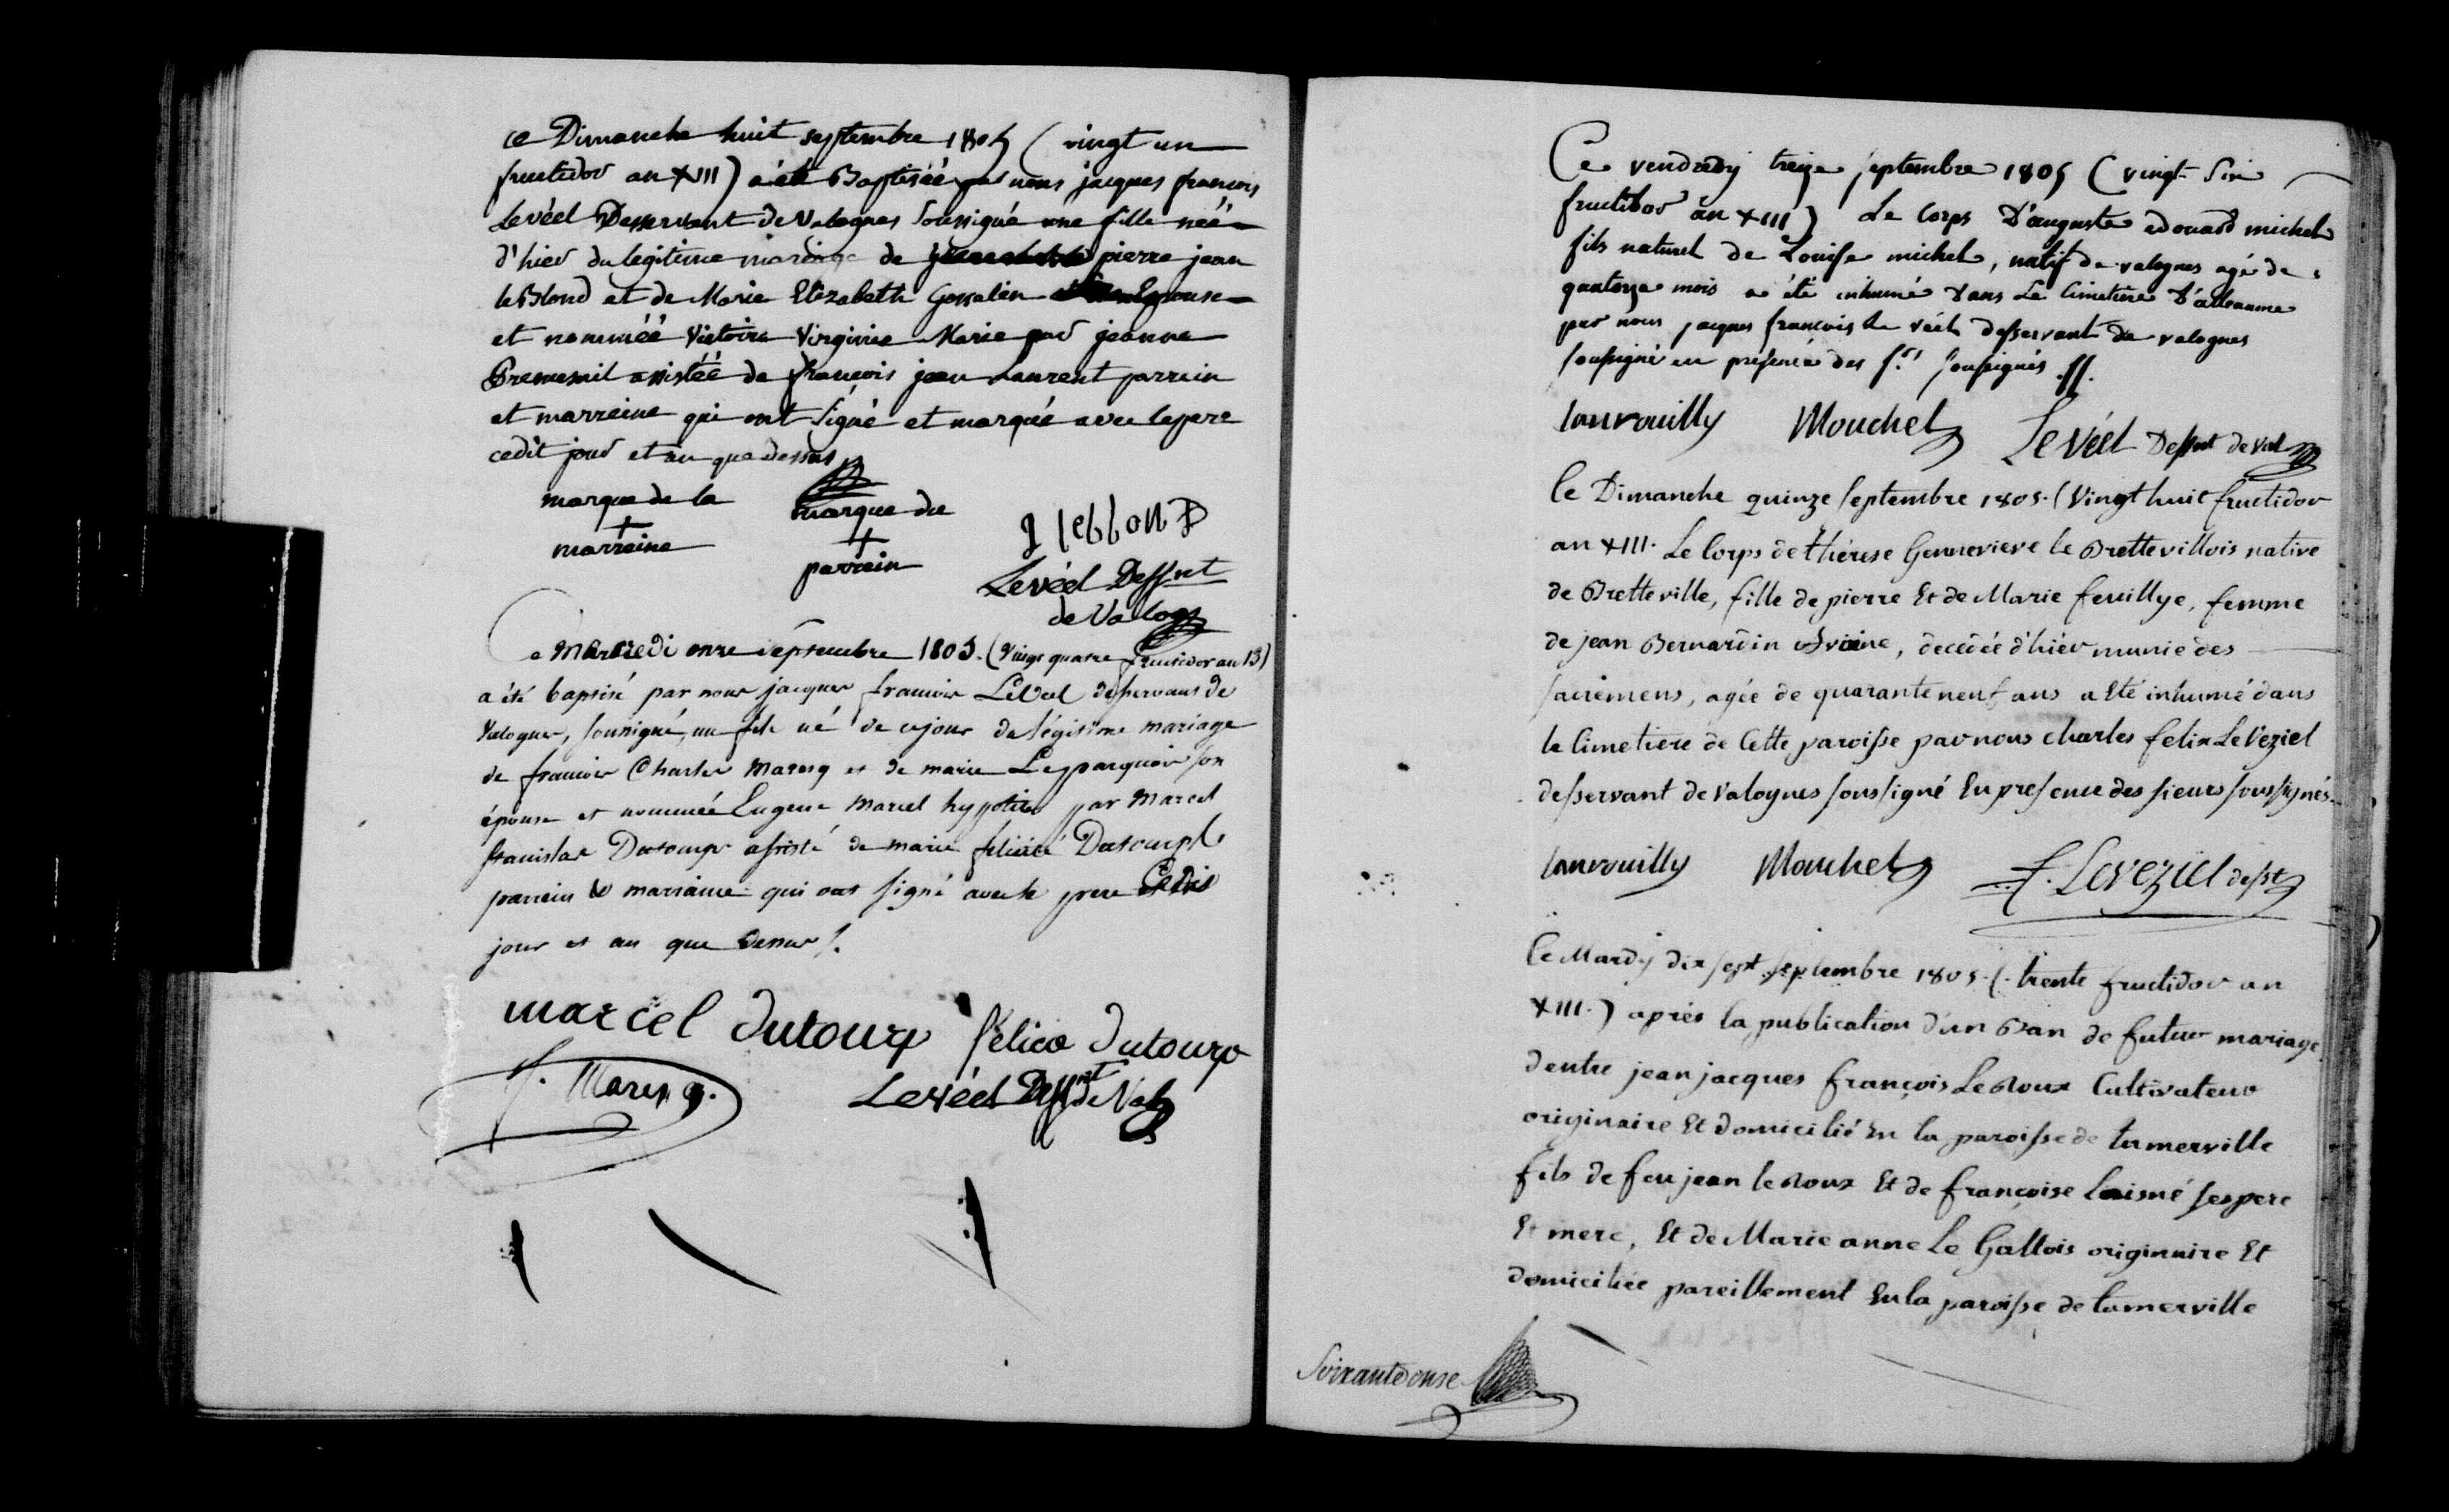 ce Dimanche huit septembre 1805 ( vingt un
fructidor an XIII ) a été Baptiséé par nous jacques francois
Levéel Desservant de Valognes soussigné une fille néé
d'hier du legitime mariage de pierre jean
le Blond et de Marie Elizabeth Gosselin Epouse
et nomméé Victoire Virginie Marie par jeanne
Premesnil assistéé de françois jean Laurent parrein
et marreine qui ont signé et marqué avec le pere
cedit jour et an que dessus
marque de la
+
marreine
marque du
+
parrein
J lebbonD
Levéel Dessnt
de Valogs
Ce Mercredi onze septembre 1805. (Vingt quatre fructidor an 13)
a été baptisé par nous jacques francois LeVéel desservant de
Valognes, soussigné, un fils né de ce jour du légitime mariage
de francois Charles Marcsq et de marie Lepparquois son
épouse et nommée Eugene Marcel hypolite par Marcel
stanislas Dutourps assisté de marie felicité Dutourps
parrein et marraine qui ont signé avec le pere Cedit
jour et an que dessus /.
marcel dutourp félice dutourp
f. Marcsq.
Levéel Dessnt de Val
Ce vendredy treize septembre 1805 ( vingt Six
fructidor an XIII ) Le Corps D'auguste edouard michel
fils naturel de Louise michel, natif de valognes agé de
quatorze mois a été inhumé dans Le Cimetiere d'alleaume
par nous jacques francois Le véel desservant de valognes
soussigné en présence des srs soussignés .//.
lanrouilly Mouchel Levéel Dessnt de val
Ce Dimanche quinze septembre 1805. ( Vingt huit fructidor
an XIII. Le Corps de thérese Gennevieve le Brettevillois native
de Bretteville, fille de pierre Et de Marie feuillye, femme
de jean Bernardin, decédée d'hiér munie des
sacrémens, agée de quarante neuf ans a Eté inhumé dans
le Cimetiere de Cette paroisse par nous charles felix LeVeziel
desservant de Valognes soussigné En presence des sieurs soussignés.
lanrouilly Mouchel f. Leveziel desst
Ce Mardy dix sept septembre 1805. (. trente fructidor an
XIII. ) aprés la publication d'un Ban de futur mariage
d'entre jean jacques françois Le Roux Cultivateur
originaire Et domicilié En la paroisse de tamerville
fils de feu jean le Roux Et de françoise Laisné ses pere
Et mere, Et de Marie anne Le Gallois originaire Et
domiciliée pareillement En la paroisse de tamerville
Soixante onse